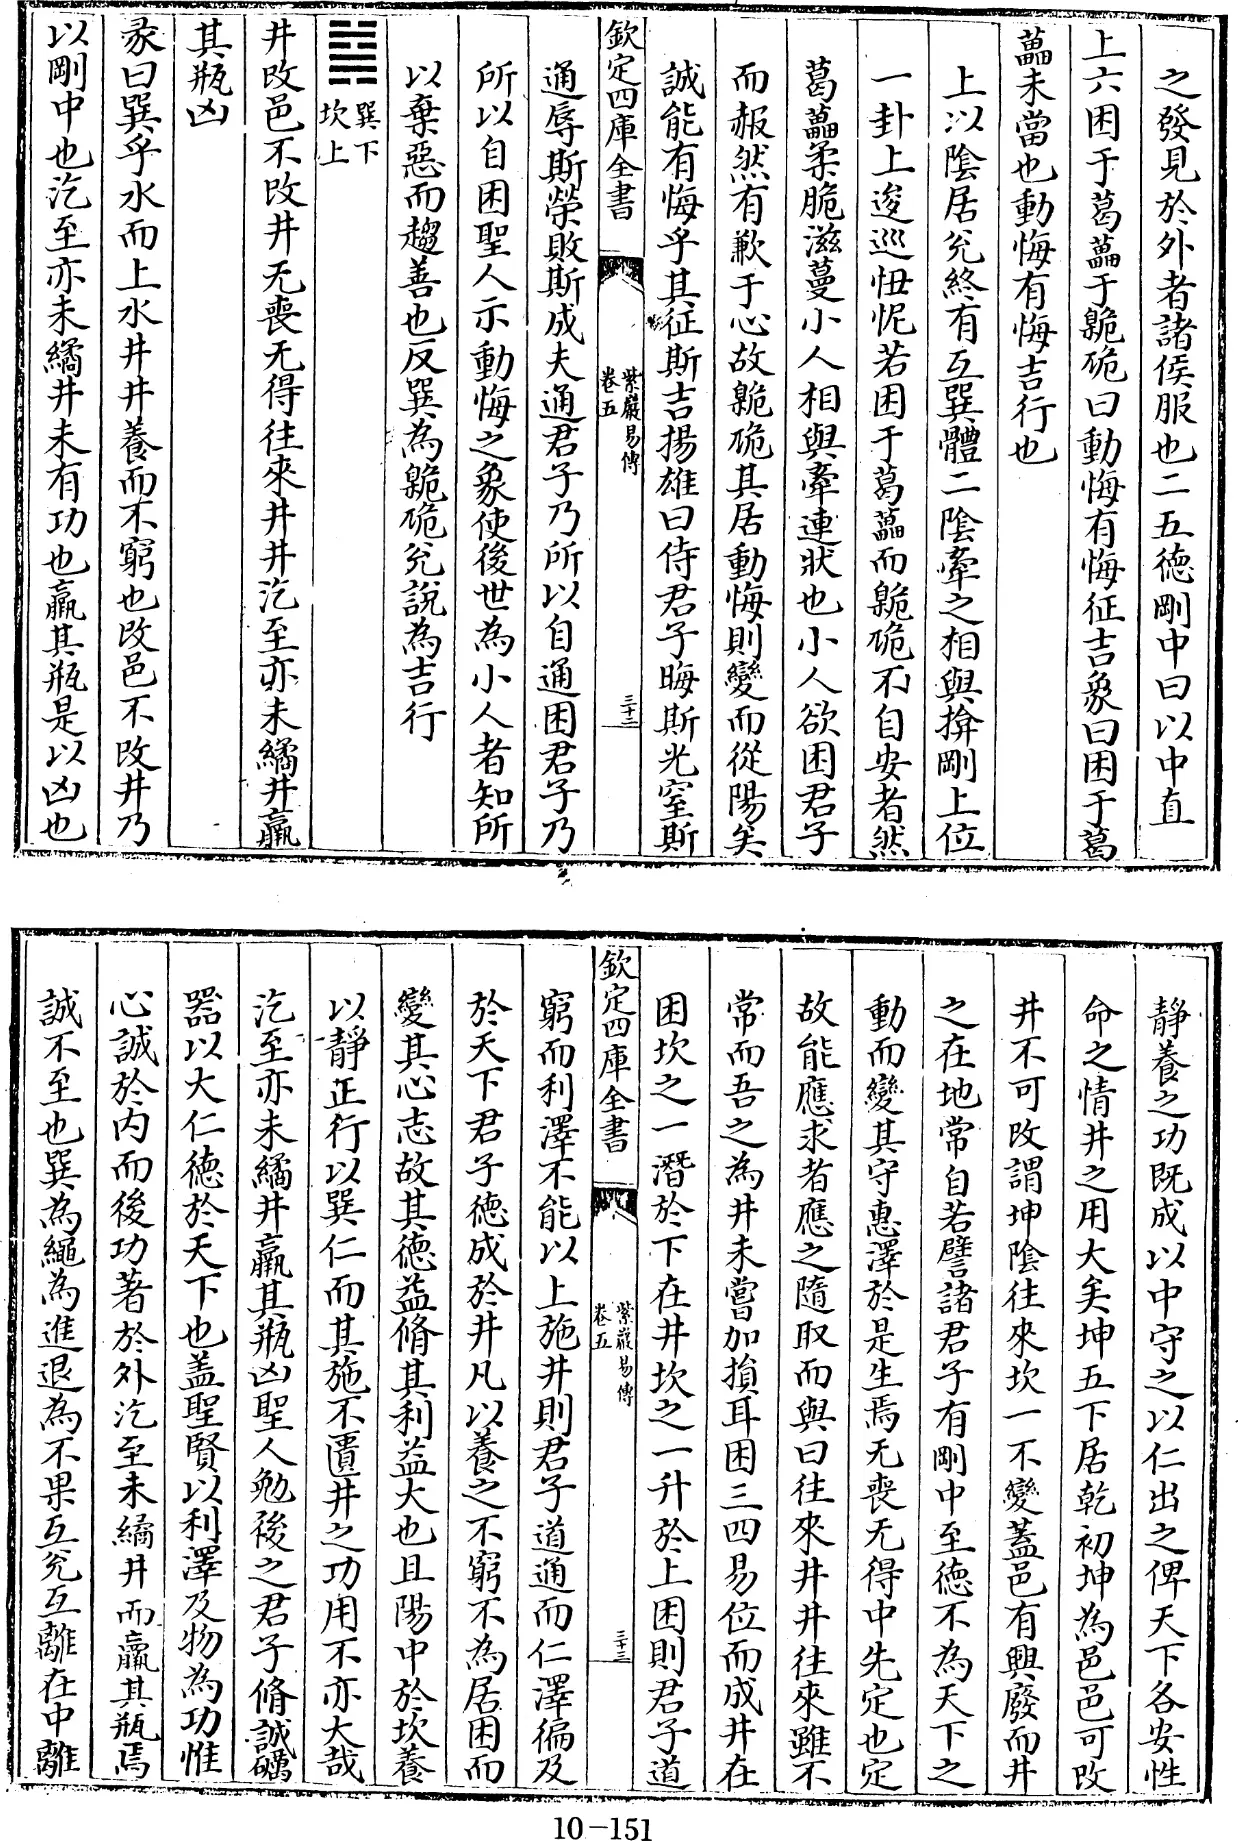 之發見於外者諸侯服也二五德剛中曰以中直
上六困于葛藟于臲硊曰動悔有悔征吉象曰困于葛
藟未當也動悔有悔吉行也
上以陰居兊終有互巽體二陰牽之相與揜剛上位
一卦上逡巡忸怩若困于葛藟而臲硊不自安者然
葛藟柔脆滋蔓小人相與牽連狀也小人欲困君子
而赧然有歉于心故臲硊其居動悔則變而從陽矣
誠能有悔乎其征斯吉揚雄曰侍君子晦斯光窒斯
欽定四庫全書
紫巖易傳
卷五
三十二
通辱斯榮敗斯成夫通君子乃所以自通困君子乃
所以自困聖人示動悔之象使後世為小人者知所
以棄惡而趨善也反巽為臲硊兊說為吉行
䷯
巽下
坎上
井改邑不改井无喪无得往來井井汔至亦未繘井羸
其瓶凶
彖曰巽乎水而上水井井養而不窮也改邑不改井乃
以剛中也汔至亦未繘井未有功也羸其瓶是以凶也
靜養之功既成以中守之以仁出之俾天下各安性
命之情井之用大矣坤五下居乾初坤為邑邑可改
井不可改謂坤陰往來坎一不變蓋邑有興廢而井
之在地常自若譬諸君子有剛中至德不為天下之
動而變其守惠澤於是生焉无喪无得中先定也定
故能應求者應之隨取而與曰往來井井往來雖不
常而吾之為井未嘗加損耳困三四易位而成井在
困坎之一潛於下在井坎之一升於上困則君子道
欽定四庫全書
紫巖易傳
卷五
三十三
窮而利澤不能以上施井則君子道通而仁澤徧及
於天下君子德成於井凡以養之不窮不為居困而
變其心志故其德益脩其利益大也且陽中於坎養
以靜正行以巽仁而其施不匱井之功用不亦大哉
汔至亦未繘井羸其瓶凶聖人勉後之君子脩誠礪
器以大仁德於天下也蓋聖賢以利澤及物為功惟
心誠於内而後功著於外汔至未繘井而羸其瓶焉
誠不至也巽為繩為進退為不果互兊互離在中離
10-151